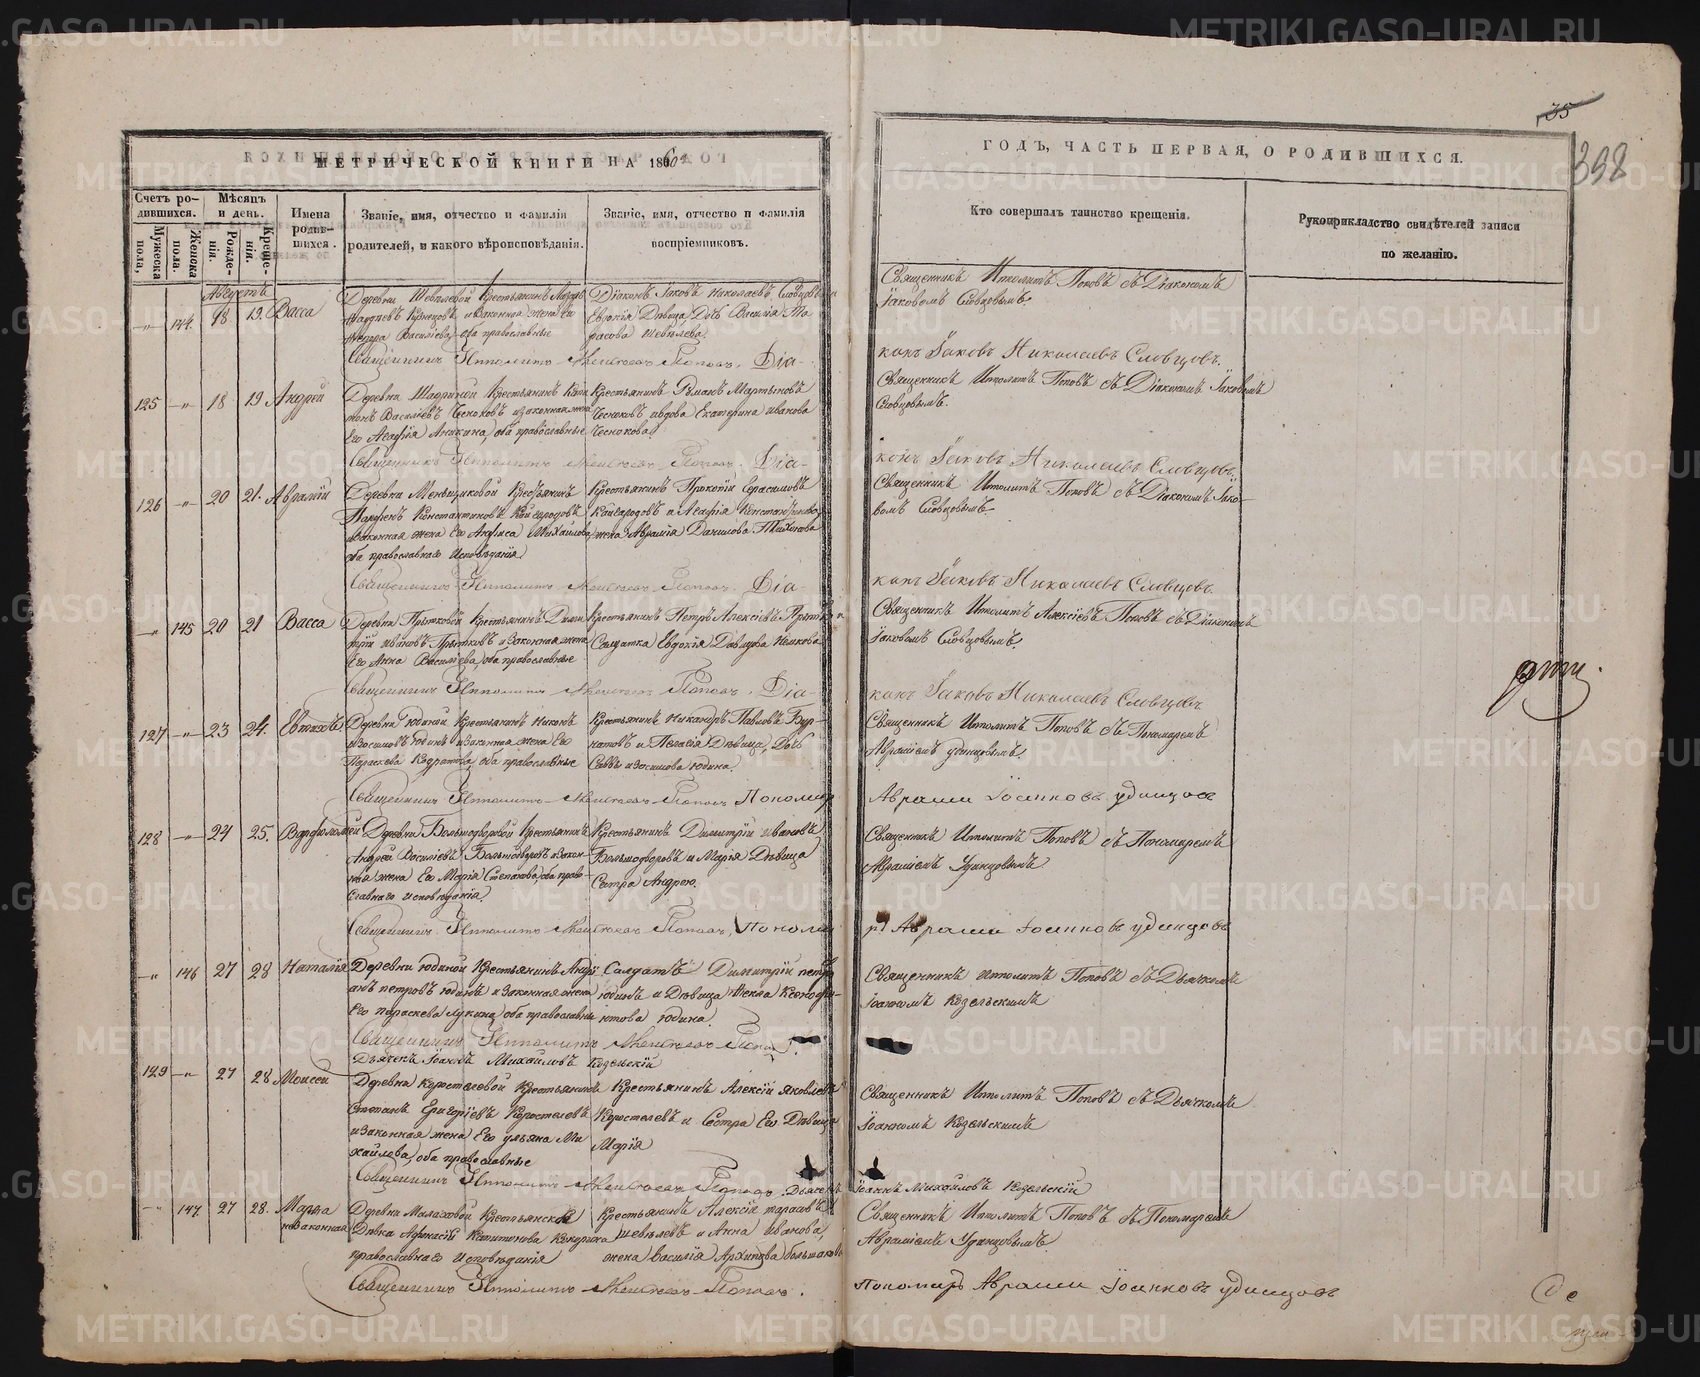 35
398
МЕТРИЧЕСКОЙ КНИГИ НА 1860
ГОДЪ, ЧАСТЬ ПЕРВАЯ, О РОДИВШИХСЯ.
Счетъ ро-
дившихся.
Мужеска пола.
Женска пола.
Мѣсяцъ
и день.
Рожде-
нія.
Креще-
нія.
Имена
родив-
шихся.
Званіе, имя, отчество и фамилія
родителей, и какого вѣроисповѣданія.
Званіе, имя, отчество и фамилія
воспріемниковъ.
Кто совершалъ таинство крещенія.
Рукоприкладство свидѣтелей записи
по желанію.
Августъ
144. 18 19. Васса
Деревни Крестьянинъ
и законная жена его
Василіева, оба православные
Діаконъ Іаковъ Николаевъ Словцовъ и
Евдокія Дѣвица Дочь Василія
Священникъ Ипполитъ Поповъ съ Діакономъ
Іаковомъ Словцовымъ.
Священникъ Ипполитъ Алексѣевъ Поповъ. Діа-
конъ Іаковъ Николаевъ Словцовъ.
125 18 19 Андрей
Деревни Крестьянинъ
Василіевъ Чесноковъ и законная жена
Его Агафія Аникина, оба православные
Крестьянинъ Романъ Мартыновъ
Чесноковъ и вдова Екатерина Иванова
Чеснокова
Священникъ Ипполитъ Поповъ съ Діакономъ Іаковомъ
Словцовымъ.
Священникъ Ипполитъ Алексѣевъ Поповъ. Діа-
конъ Іаковъ Николаевъ Словцовъ.
126 20 21. Аврамій
Деревни Меньщиковой Крестьянинъ
Парфенъ Константиновъ Кайгородовъ
и законная жена Его Анфиса Михайлова,
оба православнаго исповѣданія
Крестьянинъ Прокопій Герасимовъ
Кайгородовъ и Агафія Константинова
жена Аврамія Данилова Тихонова
Священникъ Ипполитъ Поповъ съ Діакономъ Іако-
вомъ Словцовымъ
Священникъ Ипполитъ Алексѣевъ Поповъ. Діа-
конъ Іаковъ Николаевъ Словцовъ.
145 20 21 Васса
Деревни Прытковой Крестьянинъ Дими-
трій Ивановъ Прытковъ и законная жена
Его Анна Василіева, оба православные
Крестьянинъ Петръ Алексіевъ Прытковъ и
Солдатка Евдокія Давидова
Священникъ Ипполитъ Алексіевъ Поповъ съ Діакономъ
Іаковомъ Словцовымъ.
Священникъ Ипполитъ Алексѣевъ Поповъ. Діа-
конъ Іаковъ Николаевъ Словцовъ
127 23 24. Евтихій
Деревни Юдиной Крестьянинъ Никонъ
Изосимовъ Юдинъ и законная жена Его
Параскева Кодратова, оба православные
Крестьянинъ Никандръ Павловъ Бур-
матовъ и Пелагія Дѣвица, Дочь
Саввы Изосимова Юдина.
Священникъ Ипполитъ Поповъ съ Пономаремъ
Авраміемъ Удинцовымъ.
Священникъ Ипполитъ Алексѣевъ Поповъ Пономарь
Аврамій Іоанновъ Удинцовъ
128 24 25. Варфоломей
Деревни Большедворовой Крестьянинъ
Андрей Василіевъ Большедворовъ и закон-
ная жена Его Марія Степанова, оба право-
славнаго исповѣданія.
Крестьянинъ Димитрій Ивановъ
Большедворовъ и Марія Дѣвица
Сестра Андрею.
Священникъ Ипполитъ Поповъ съ Пономаремъ
Авраміемъ Удинцовымъ
Священникъ Ипполитъ Алексѣевъ Поповъ, Понома
рь Аврамій Іоанновъ Удинцовъ
146 27 28 Наталія
Деревни Юдиной Крестьянинъ Андрі-
анъ Петровъ Юдинъ и законная жена
Его Параскева Лукина, оба православные
Солдатъ Димитрій Петровъ
Юдинъ и Дѣвица Ѳекла Ксенофо-
нтова Юдина.
Священникъ Ипполитъ Поповъ съ Дьячкомъ
Іоанномъ Козельскимъ
Священникъ Ипполитъ Алексѣевъ Поповъ.
Дьячекъ Іоаннъ Михайловъ Козельскій
129 27 28 Моисей
Деревни Коростелевой Крестьянинъ
Степанъ Григоріевъ Коростелевъ
и законная жена Его Ульяна Ми-
хайлова, оба православные
Крестьянинъ Алексій Яковлевъ
Коростелевъ и Сестра Его Дѣвица
Марія
Священникъ Ипполитъ Поповъ съ Дьячкомъ
Іоанномъ Козельскимъ
Священникъ Ипполитъ Алексѣевъ Поповъ. Дьячекъ
Іоаннъ Михайловъ Козельскій
147 27 28. Марѳа
незаконная
Деревни Малаховой Крестьянская
Дѣвка
православнаго исповѣданія
Крестьянинъ Алексій Тарасовъ
Шевелевъ и Анна Иванова,
жена Василія Архипова
Священникъ Ипполитъ Поповъ съ Пономаремъ
Авраміемъ Удинцовымъ
Священникъ Ипполитъ Алексѣевъ Поповъ.
Пономарь Аврамій Іоанновъ Удинцовъ
METRIKI.GASO-URAL.RU